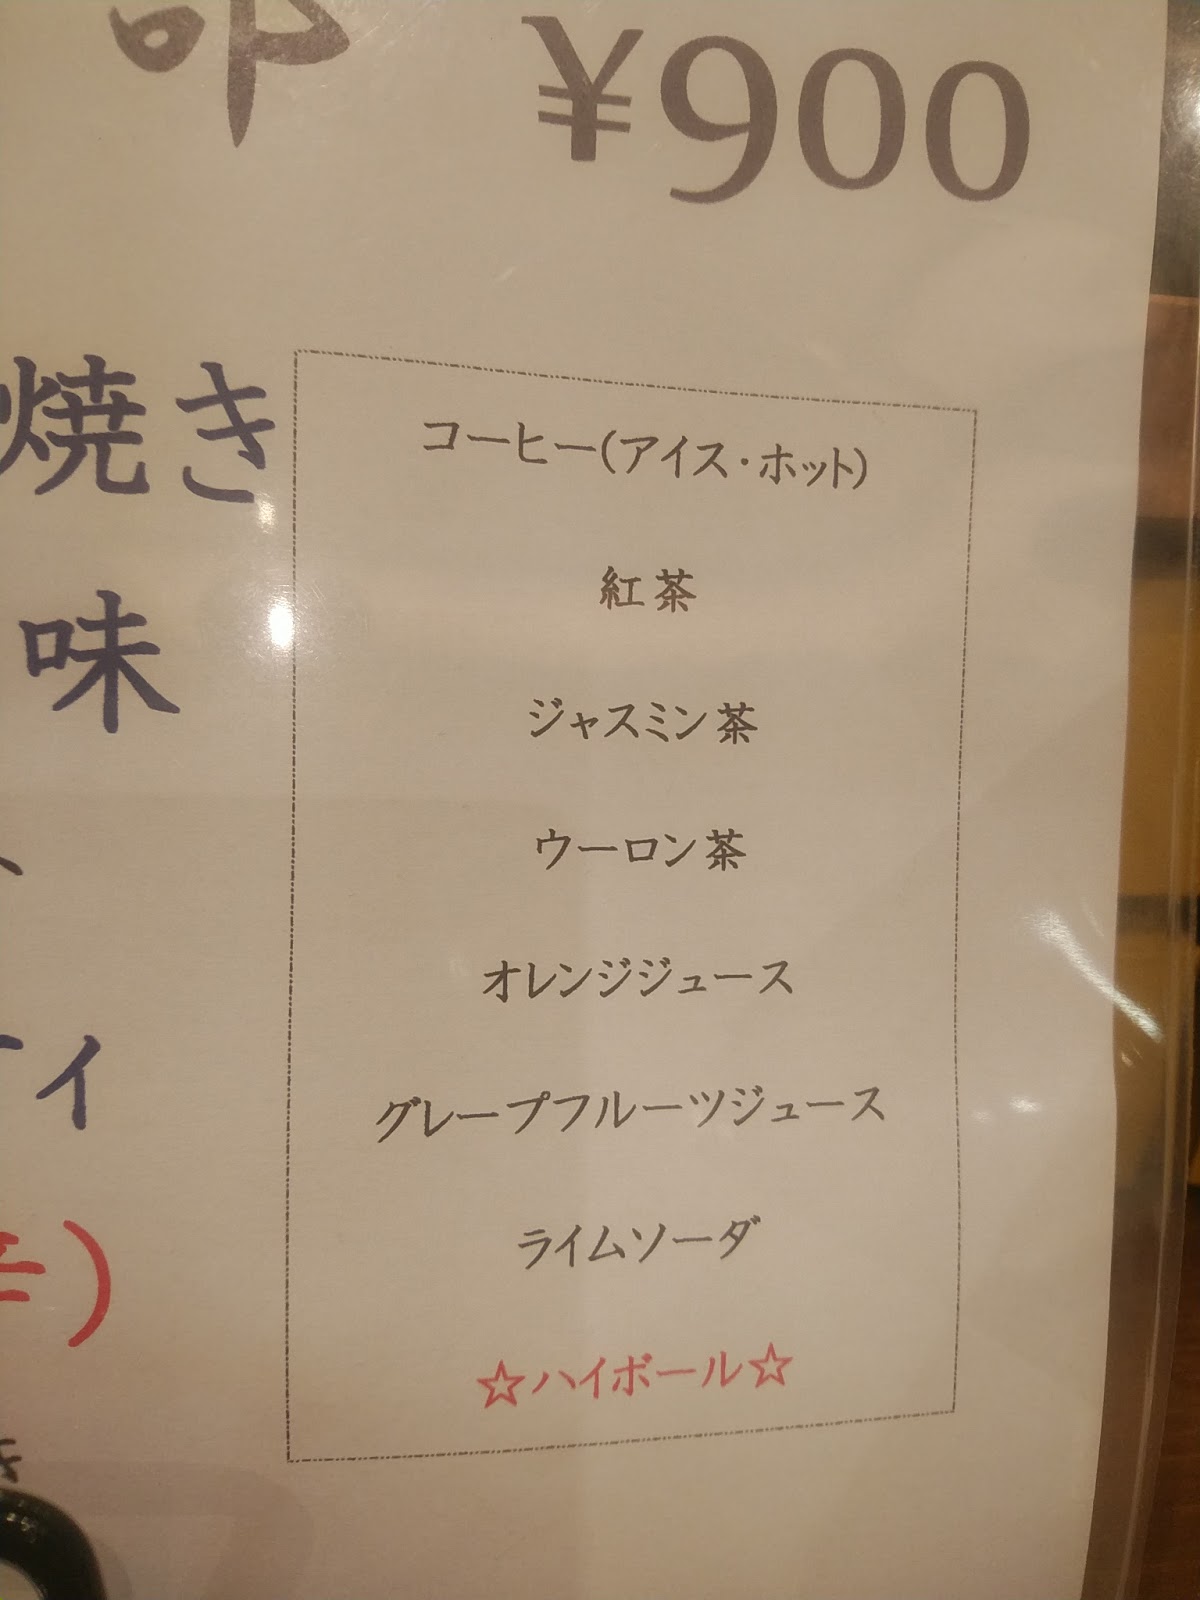 ¥900
焼き
味
ィ
コーヒー(アイス・ホット)
紅茶
ジャスミン茶
ウーロン茶
オレンジジュース
グレープフルーツジュース
ライムソーダ
☆ハイボール☆